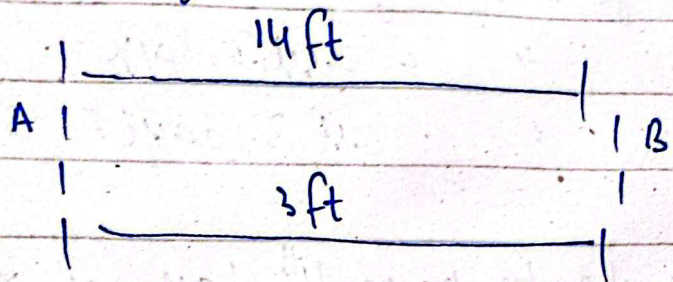 14 ft
A
B
3 ft